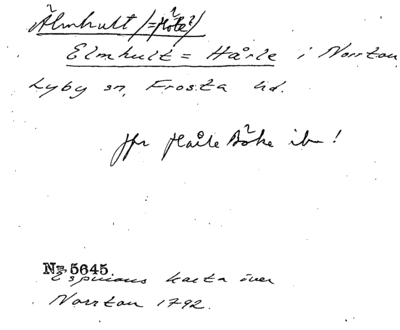 Älmhult /=Håle?/
Elmhult = Hårle i Norrton,
Lyby sn, Frosta hd.
jfr Håle Böke ibm!
No 5645
Espmans karta över
Norrton 1792.